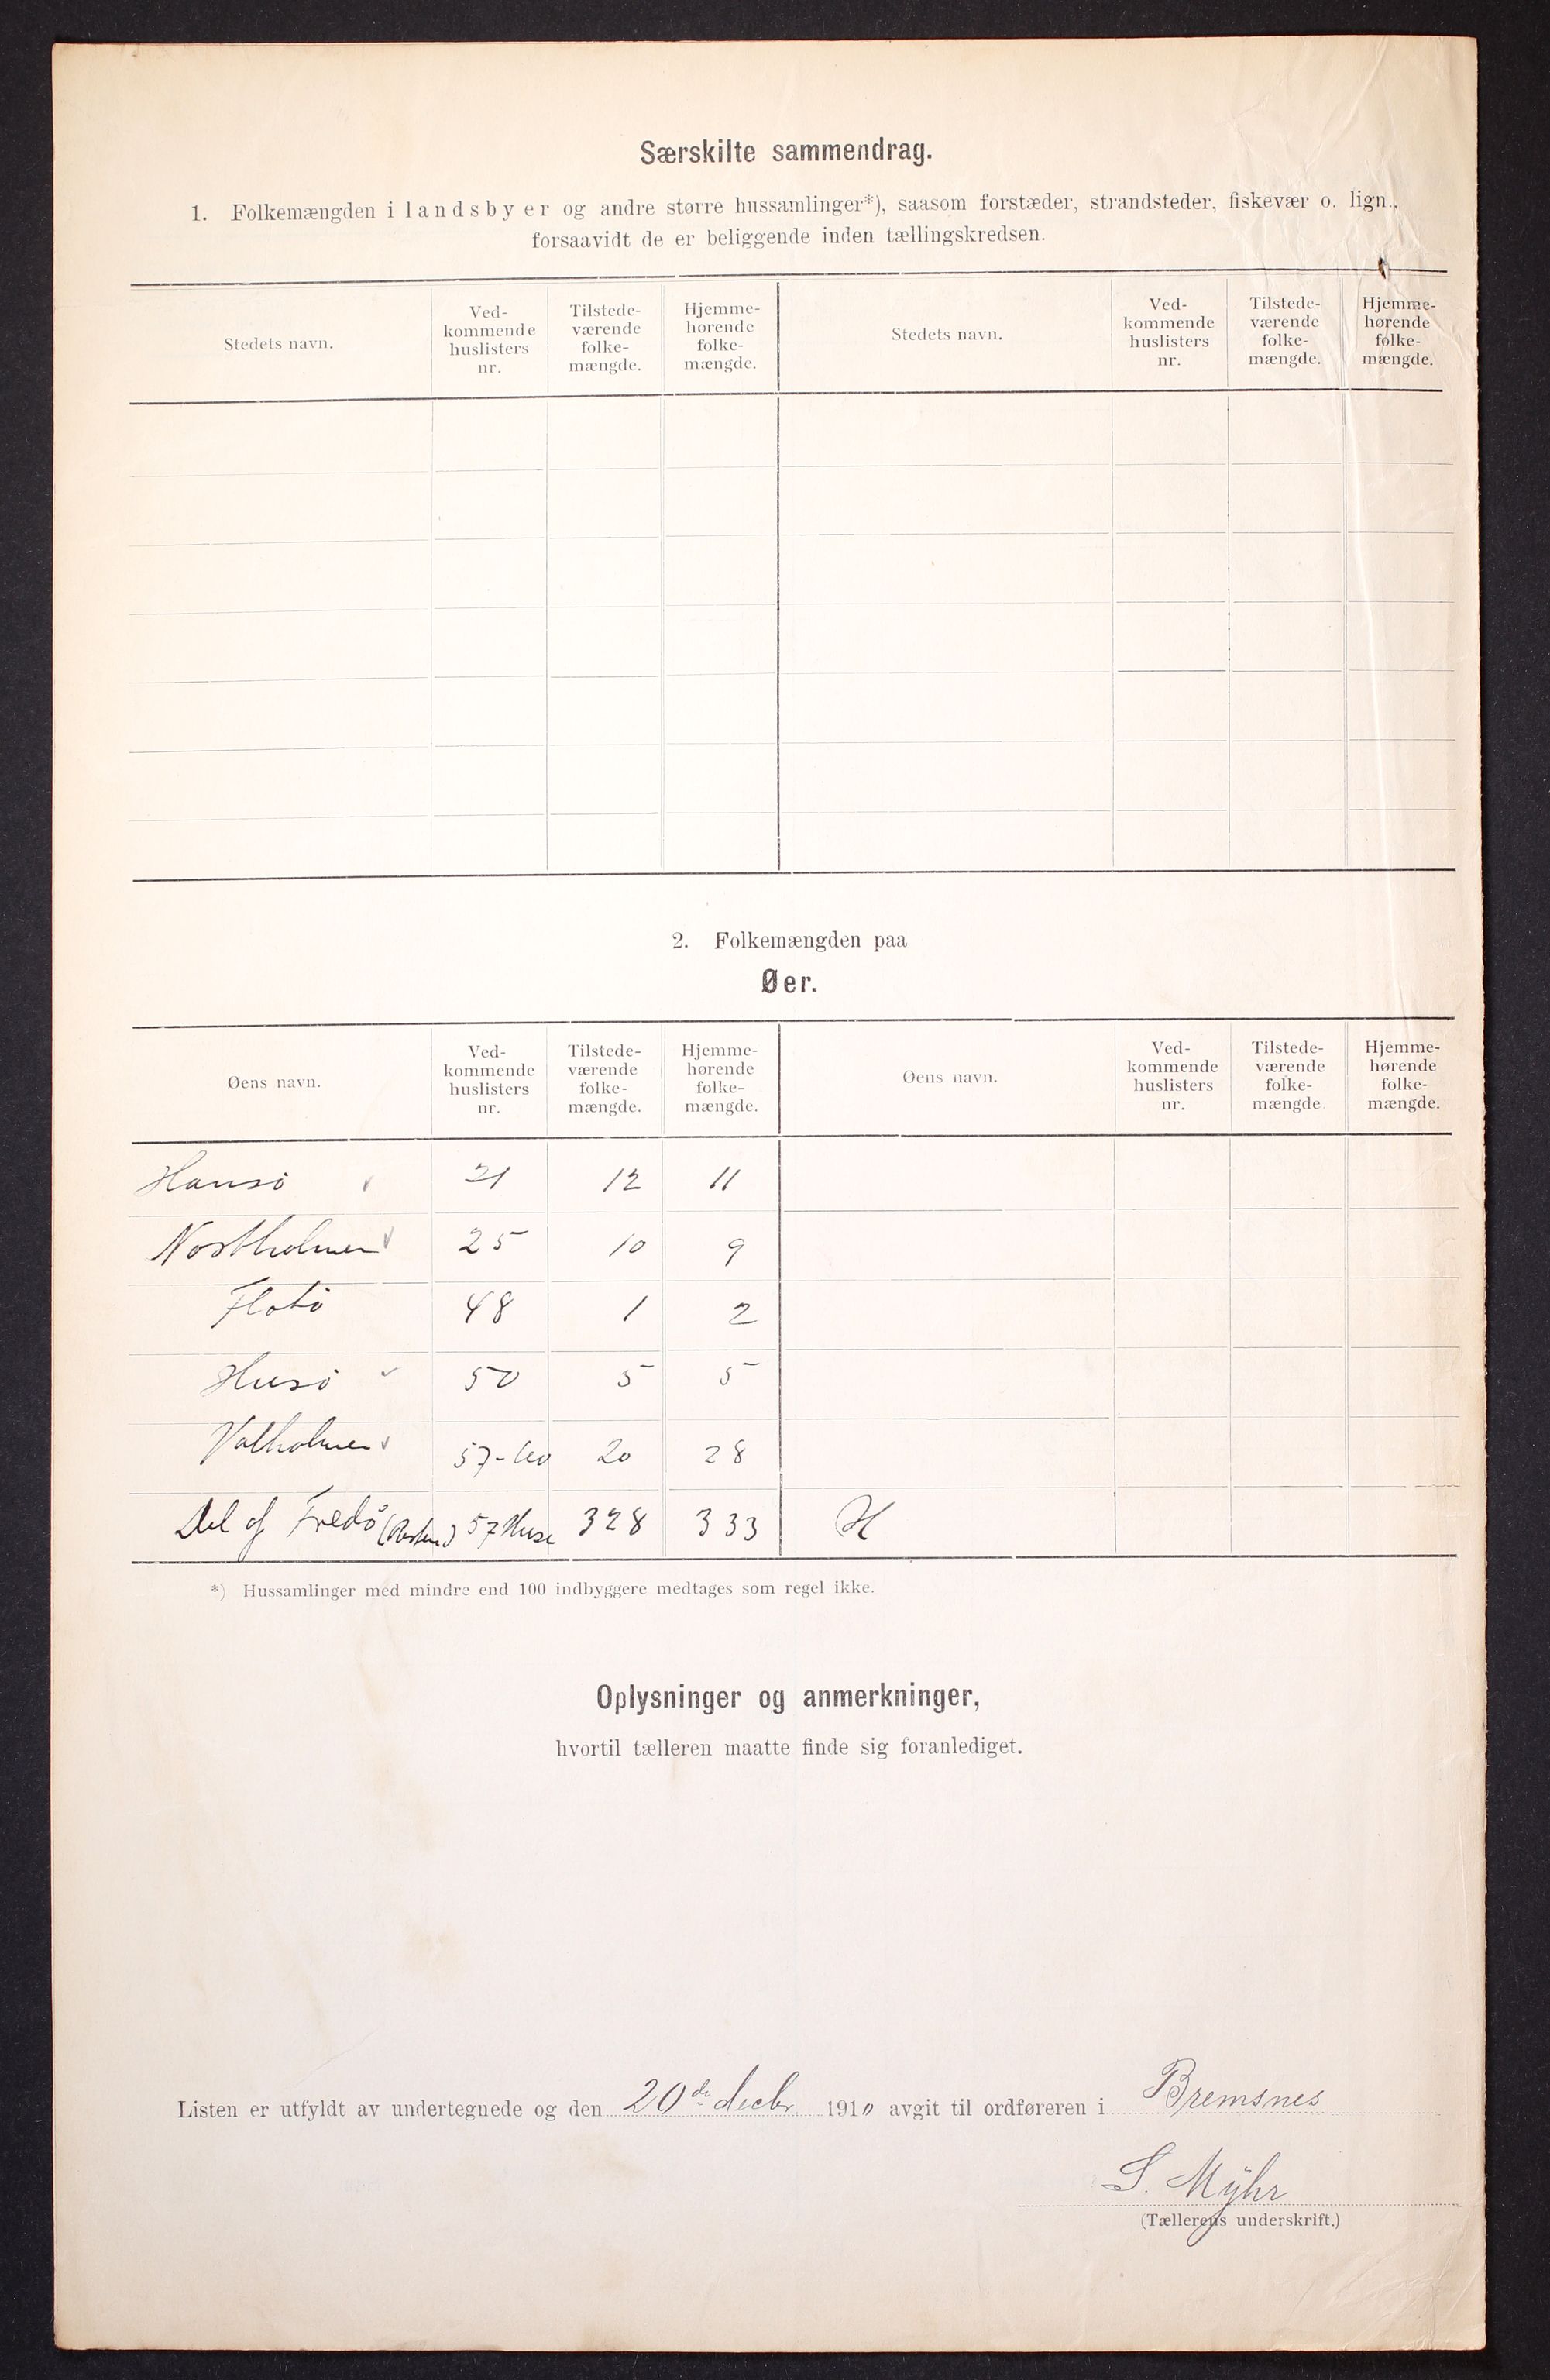 Særskilte sammendrag.
1. Folkemængden i landsbyer og andre større hussamlinger*), saasom forstæder, strandsteder, fiskevær o. lign.,
forsaavidt de er beliggende inden tællingskredsen.
Stedets navn. Ved-kommende huslisters nr. Tilstede-værende folke-mængde. Hjemme-hørende folke-mængde. Stedets navn. Ved-kommende huslisters nr. Tilstede-værende folke-mængde. Hjemme-hørende folke-mængde.
2. Folkemængden paa
Øer.
Øens navn. Ved-kommende huslisters nr. Tilstede-værende folke-mængde. Hjemme-hørende folke-mængde. Øens navn. Ved-kommende huslisters nr. Tilstede-værende folke-mængde Hjemme-hørende folke-mængde.
Hansö 21 12 11
Nostholmen 25 10 9
Flatö 48 1 2
Husö 50 5 5
Valholmen 57-60 20 28
Del af Fredö (Resten) 57 Huse 328 333 H
*) Hussamlinger med mindre end 100 indbyggere medtages som regel ikke.
Oplysninger og anmerkninger,
hvortil tælleren maatte finde sig foranlediget.
Listen er utfyldt av undertegnede og den 20de decbr. 1910 avgit til ordføreren i Bremsnes
S. Mÿhr
(Tællerens underskrift.)